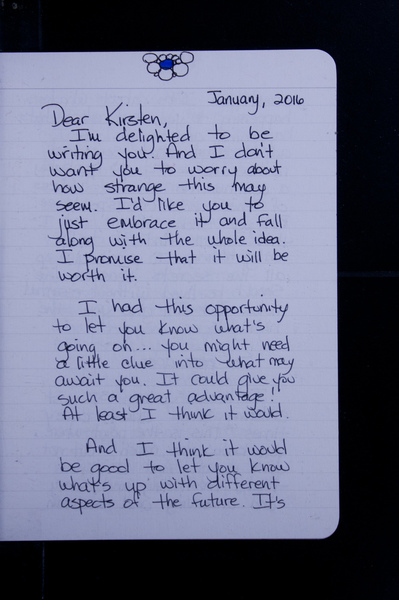 January, 2016
Dear Kirsten,
I'm delighted to be
writing you. And I don't
want you to worry about
how strange this may
seem. I'd like you to
just embrace it and fall
along with the whole idea.
I promise that it will be
worth it.
I had this opportunity
to let you know what's
going on... you might need
a little clue into what may
await you. It could give you
such a great advantage!
At least I think it would.
And I think it would
be good to let you know
what's up with different
aspects of the future. It's